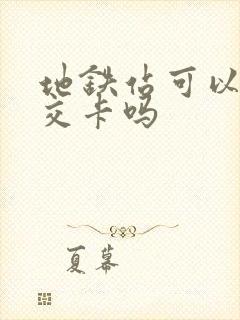 地铁佔可以
交卡吗
夏幕